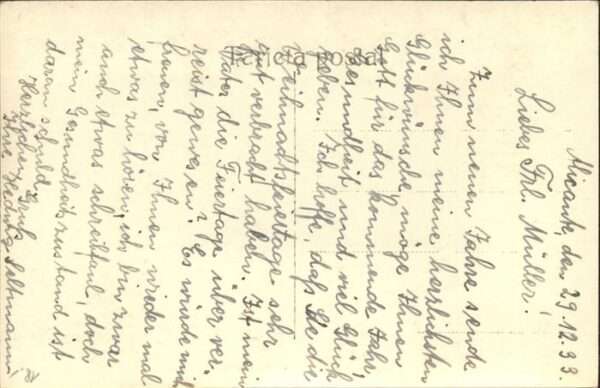 Alicante, den 29.12.33
Liebes Frl. Müller!
Zum neuen Jahre sende
ich Ihnen meine herzlichsten
Glückwünsche, möge Ihnen
Gott für das kommende Jahr
Gesundheit und viel Glück
geben. Ich hoffe, daß Sie die
Weihnachtsfeiertage sehr
gut verbracht haben. Ist mein
Vater die Feiertage über ver-
reist gewesen? Es würde mich
freuen, von Ihnen wieder mal
etwas zu hören, ich bin zwar
auch etwas schreibfaul, doch
mein Gesundheitszustand ist
daran schuld.
Herzliche Grüße
Ihre Hedwig
Tarjeta postal